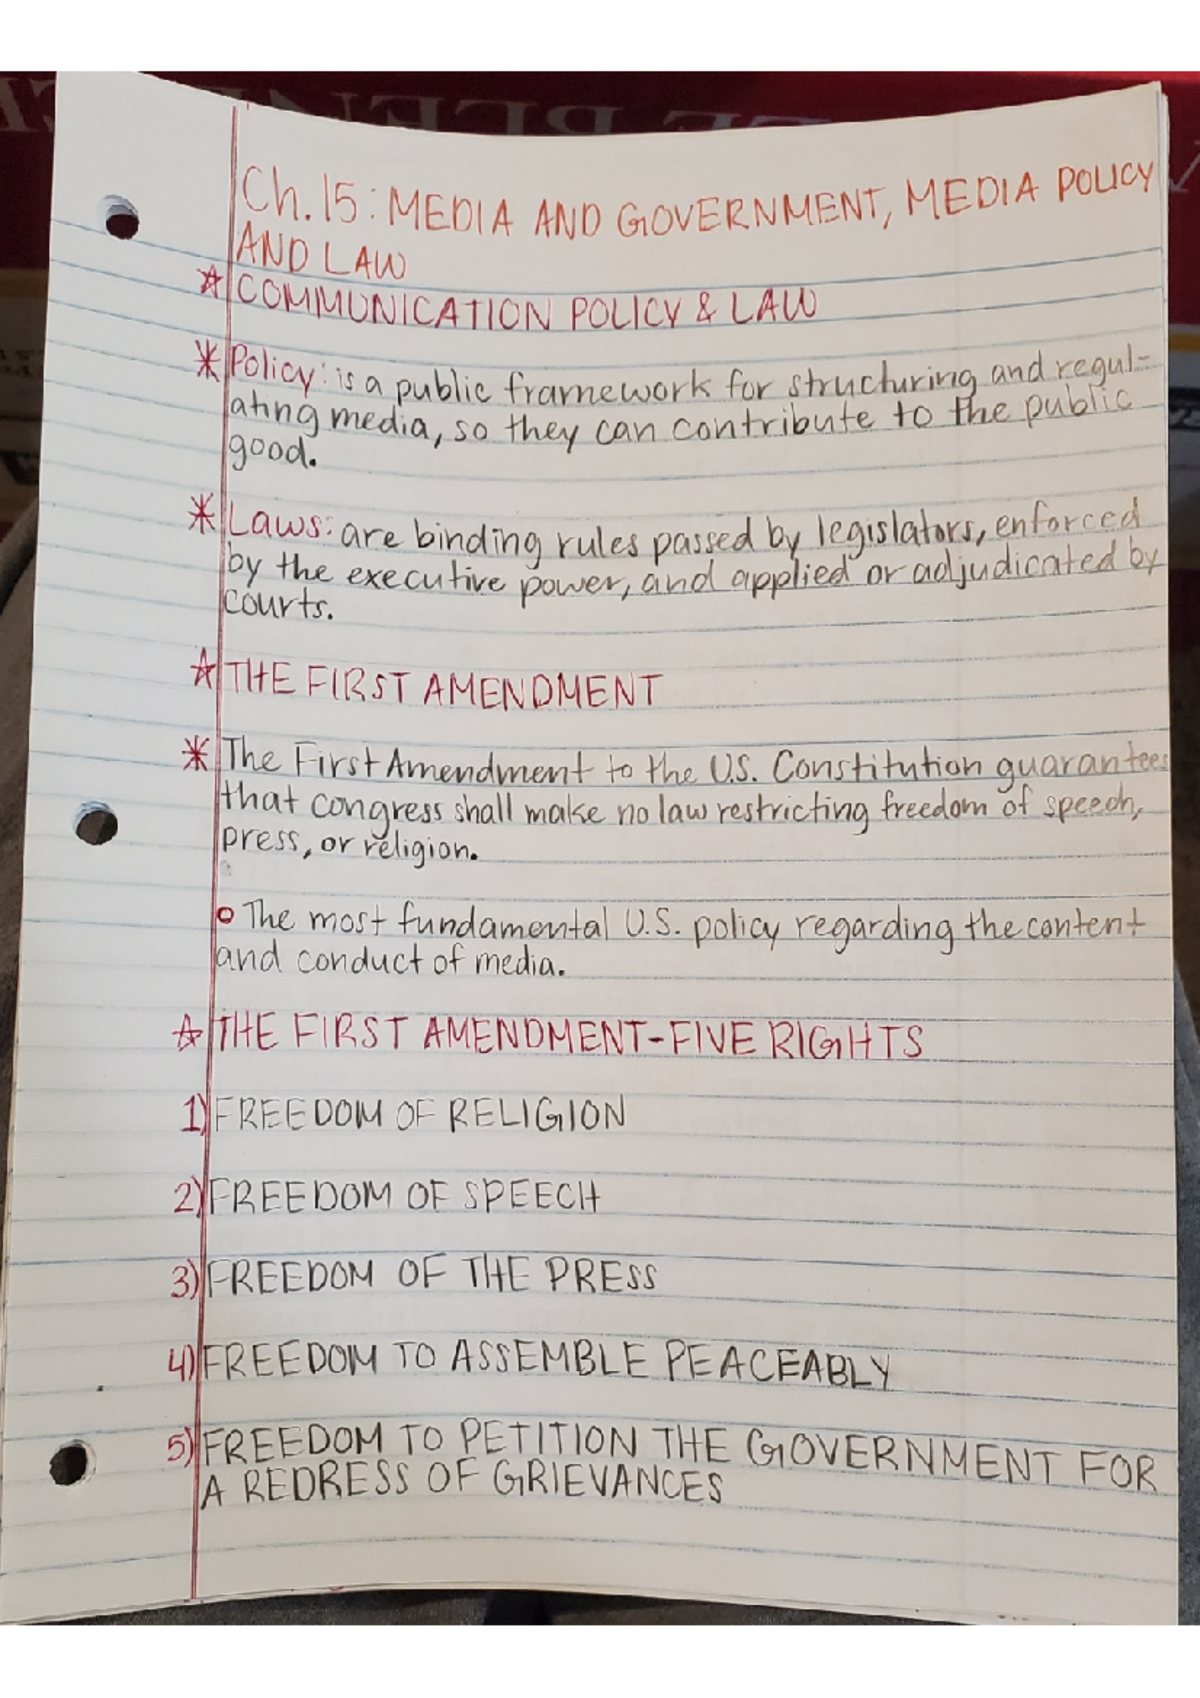 Ch. 15: MEDIA AND GOVERNMENT, MEDIA POLICY
AND LAW
☆ COMMUNICATION POLICY & LAW
* Policy: is a public framework for structuring and regul-
ating media, so they can contribute to the public
good.
* Laws: are binding rules passed by legislators, enforced
by the executive power, and applied or adjudicated by
courts.
☆ THE FIRST AMENDMENT
* The First Amendment to the U.S. Constitution guarantees
that congress shall make no law restricting freedom of speech,
press, or religion.
o The most fundamental U.S. policy regarding the content
and conduct of media.
☆ THE FIRST AMENDMENT-FIVE RIGHTS
1) FREEDOM OF RELIGION
2) FREEDOM OF SPEECH
3) FREEDOM OF THE PRESS
4) FREEDOM TO ASSEMBLE PEACEABLY
5) FREEDOM TO PETITION THE GOVERNMENT FOR
A REDRESS OF GRIEVANCES